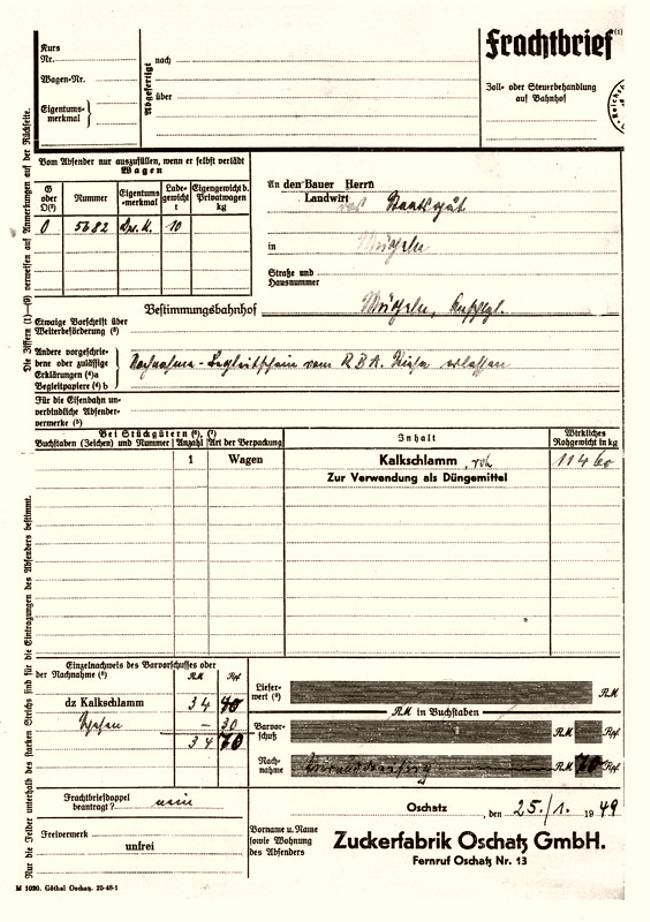 Frachtbrief (1)
Kurs
Nr.
Wagen-Nr.
Eigentums-
merkmal
Abgefertigt
nach
über
Zoll- oder Steuerbehandlung
auf Bahnhof
Die Ziffern (1)—(9) verweisen auf Anmerkungen auf der Rückseite.
Vom Absender nur auszufüllen, wenn er selbst verlädt
Wagen
G oder O(³) Nummer Eigentums-merkmal Lade-gewicht t Eigengewicht b. Privatwagen kg
O 5682 Drs.K. 10
An den Bauer Herrn
Landwirt das Staatsgut
in Mügeln
Straße und
Hausnummer
Bestimmungsbahnhof Mügeln,
Etwaige Vorschrift über
Weiterbeförderung (⁸)
Andere vorgeschrie-
bene oder zulässige
Erklärungen (⁴)a
Begleitpapiere (⁴) b
Nachnahme-Begleitschein vom R B A. Riesa erlassen
Für die Eisenbahn un-
verbindliche Absender-
vermerke (⁵)
Bei Stückgütern (⁶), (⁷)
Buchstaben (Zeichen) und Nummer Anzahl Art der Verpackung Inhalt Wirkliches Rohgewicht in kg
1 Wagen Kalkschlamm, roh 11460
Zur Verwendung als Düngemittel
Nur die Felder unterhalb des starken Strichs sind für die Eintragungen des Absenders bestimmt.
Einzelnachweis des Barvorschusses oder
der Nachnahme (⁸) RM Rpf
dz Kalkschlamm 34 40
— 30
34 70
Liefer-
wert (⁹) RM
RM in Buchstaben
Barvor-
schuß RM Rpf.
Nach-
nahme Vierunddreißig RM 70 Rpf
Frachtbriefdoppel
beantragt? nein
Freivermerk
unfrei
Oschatz, den 25./1. 1949
Vorname u. Name
sowie Wohnung
des Absenders
Zuckerfabrik Oschatz GmbH.
Fernruf Oschatz Nr. 13
M 1030. Göthel Oschatz. 25-48-1